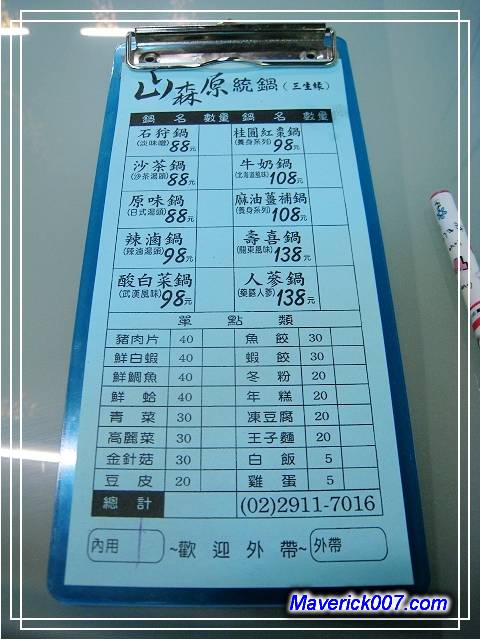 山森原統鍋(三重條)
鍋名 數量 鍋名 數量
石狩鍋 (淡味噌) 88元 桂圓紅棗鍋 (養身系列) 98元
沙茶鍋 (沙茶湯頭) 88元 牛奶鍋 (北海道風味) 108元
原味鍋 (日式湯頭) 88元 麻油薑補鍋 (養身系列) 108元
辣滷鍋 (辣滷湯頭) 98元 壽喜鍋 (關東風味) 138元
酸白菜鍋 (武漢風味) 98元 人蔘鍋 (藥膳人蔘) 138元
單點類
豬肉片 40 魚餃 30
鮮白蝦 40 蝦餃 30
鮮鯛魚 40 冬粉 20
鮮蛤 40 年糕 20
青菜 30 凍豆腐 20
高麗菜 30 王子麵 20
金針菇 30 白飯 5
豆皮 20 雞蛋 5
總計 (02)2911-7016
內用 ~歡迎外帶~ 外帶
Maverick007.com